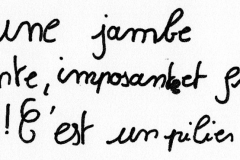 une jambe
nte, imposante et
! C'est un pilier